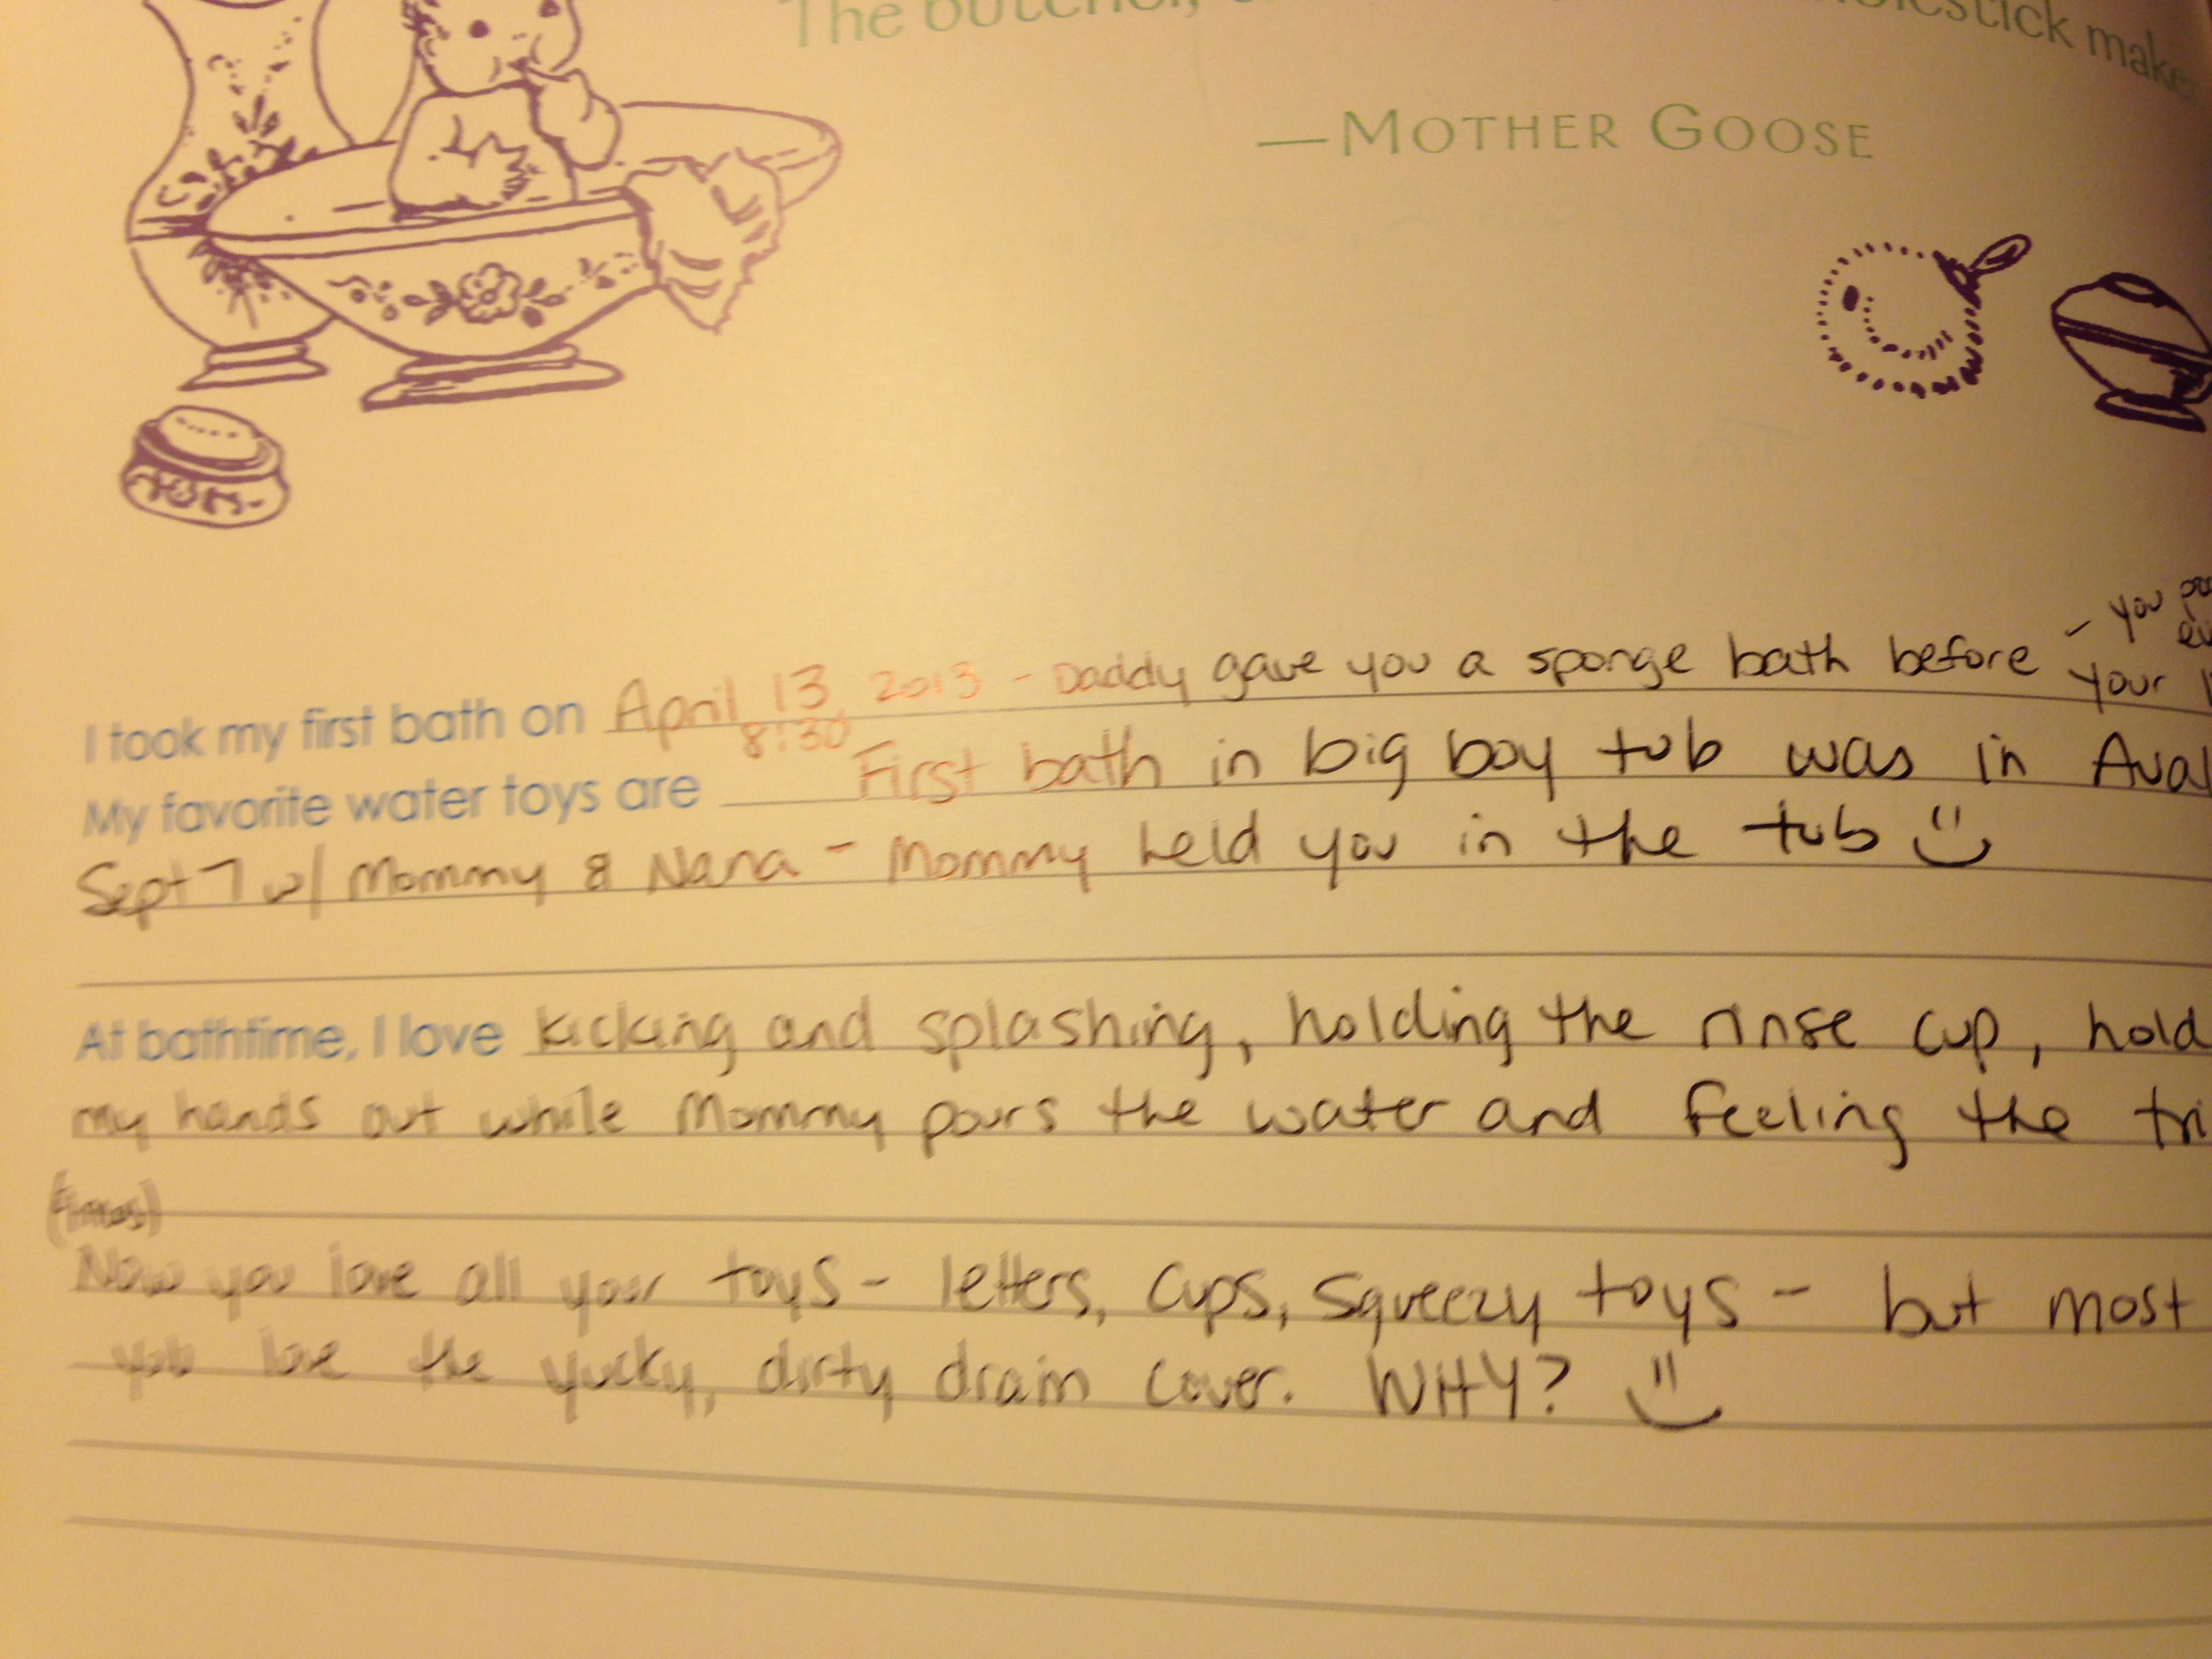 The
maker
—MOTHER GOOSE
- you
your
I took my first bath on April 13, 2013 - Daddy gave you a sponge bath before
8:30
My favorite water toys are First bath in big boy tub was in Aval
Sept 7 w/ Mommy & Nana - Mommy held you in the tub
At bathtime, I love kicking and splashing, holding the rinse cup, hold
my hands out while Mommy pours the water and feeling the tri
Now you love all your toys - letters, cups, squeezy toys - but most
you love the yucky, dirty drain cover. WHY?